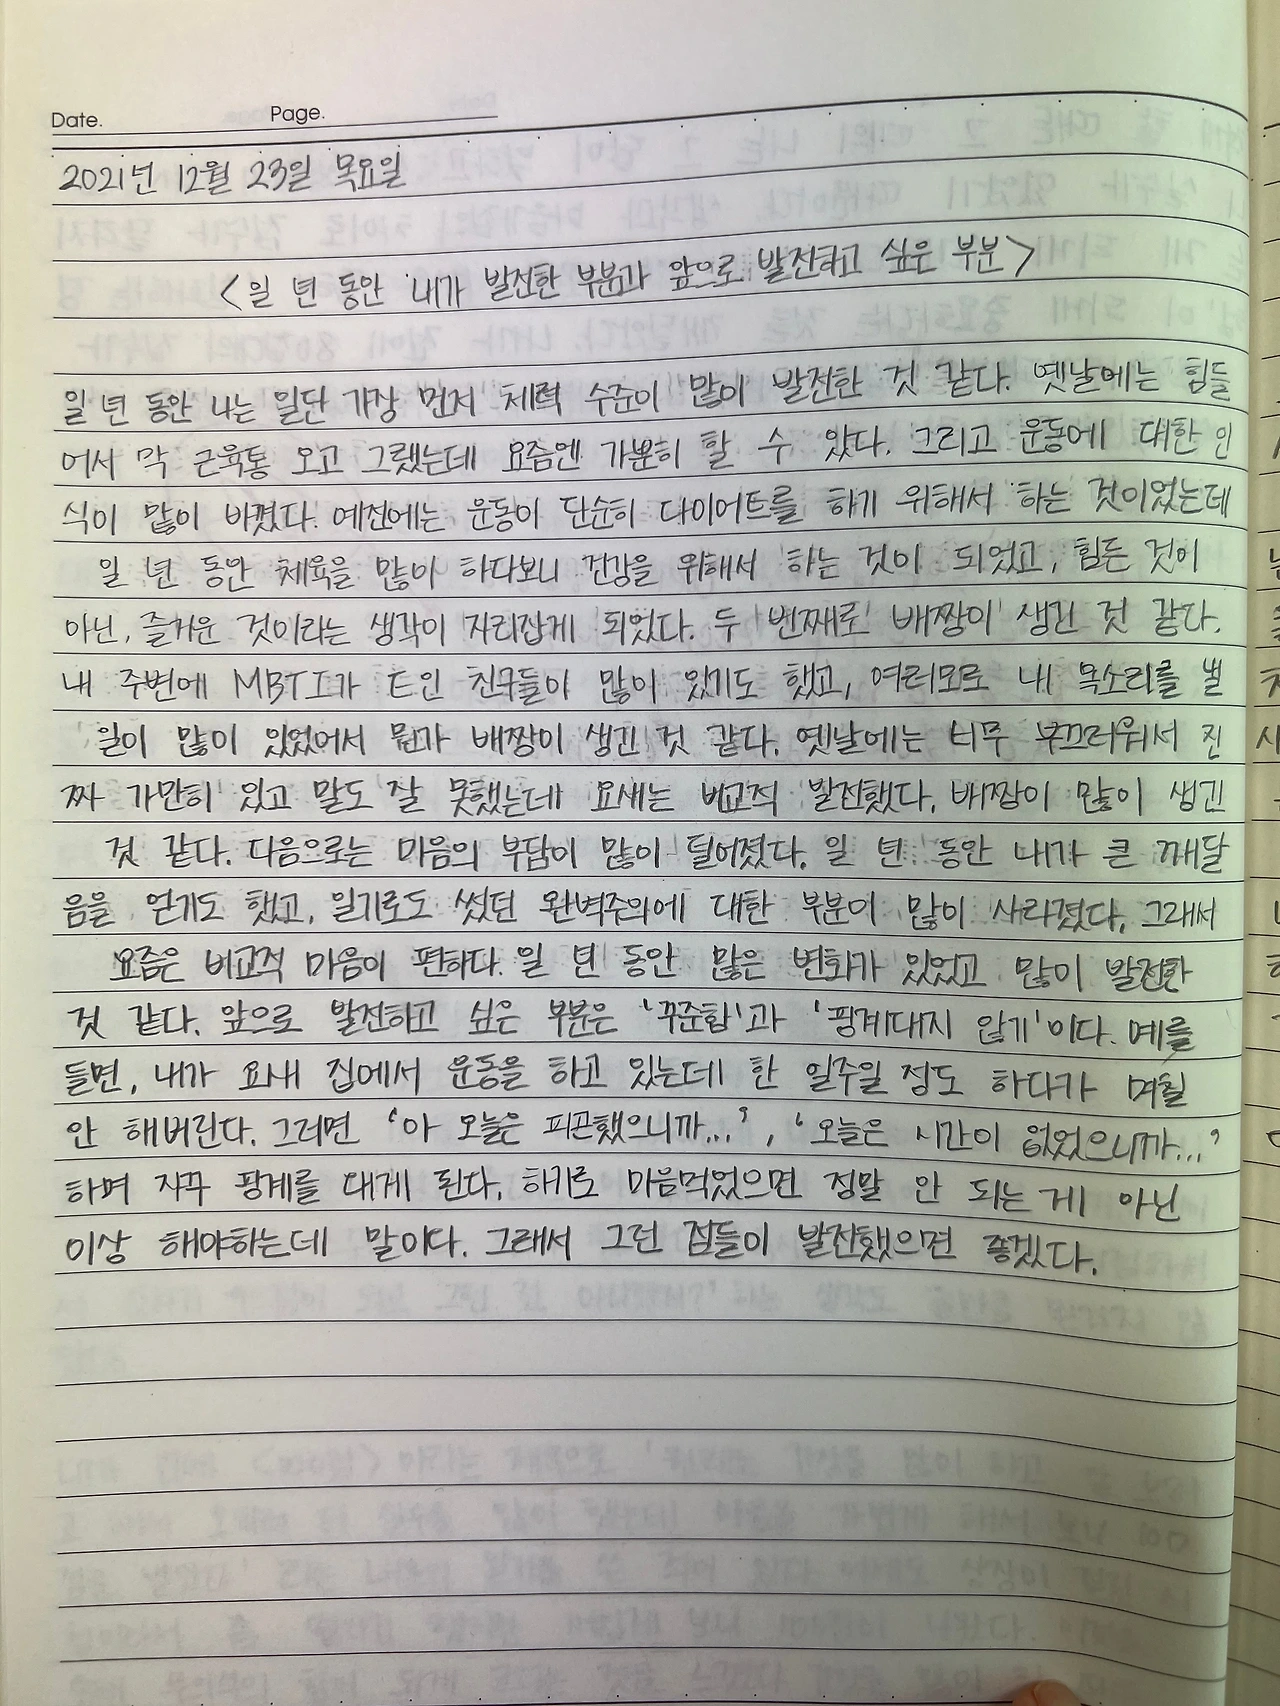 Date. Page.
2021년 12월 23일 목요일
<일 년 동안 내가 발전한 부분과 앞으로 발전하고 싶은 부분>
일 년 동안 나는 일단 가장 먼저 체력 수준이 많이 발전한 것 같다. 옛날에는 힘들
어서 막 근육통 오고 그랬는데 요즘엔 가뿐히 할 수 있다. 그리고 운동에 대한 인
식이 많이 바꼈다. 예전에는 운동이 단순히 다이어트를 하기 위해서 하는 것이었는데
일 년 동안 체육을 많이 하다보니 건강을 위해서 하는 것이 되었고, 힘든 것이
아닌, 즐거운 것이라는 생각이 자리잡게 되었다. 두 번째로 배짱이 생긴 것 같다.
내 주변에 MBTI가 E인 친구들이 많이 있기도 했고, 여러모로 내 목소리를 낼
일이 많이 있었어서 뭔가 배짱이 생긴 것 같다. 옛날에는 너무 부끄러워서 진
짜 가만히 있고 말도 잘 못했는데 요새는 비교적 발전했다. 배짱이 많이 생긴
것 같다. 다음으로는 마음의 부담이 많이 덜어졌다. 일 년 동안 내가 큰 깨달
음을 얻기도 했고, 일기로도 썼던 완벽주의에 대한 부분이 많이 사라졌다. 그래서
요즘은 비교적 마음이 편하다. 일 년 동안 많은 변화가 있었고 많이 발전한
것 같다. 앞으로 발전하고 싶은 부분은 '꾸준함'과 '핑계대지 않기'이다. 예를
들면, 내가 요새 집에서 운동을 하고 있는데 한 일주일 정도 하다가 며칠
안 해버린다. 그러면 '아 오늘은 피곤했으니까...', '오늘은 시간이 없었으니까...'
하며 자꾸 핑계를 대게 된다. 하기로 마음먹었으면 정말 안 되는 게 아닌
이상 해야하는데 말이다. 그래서 그런 점들이 발전했으면 좋겠다.